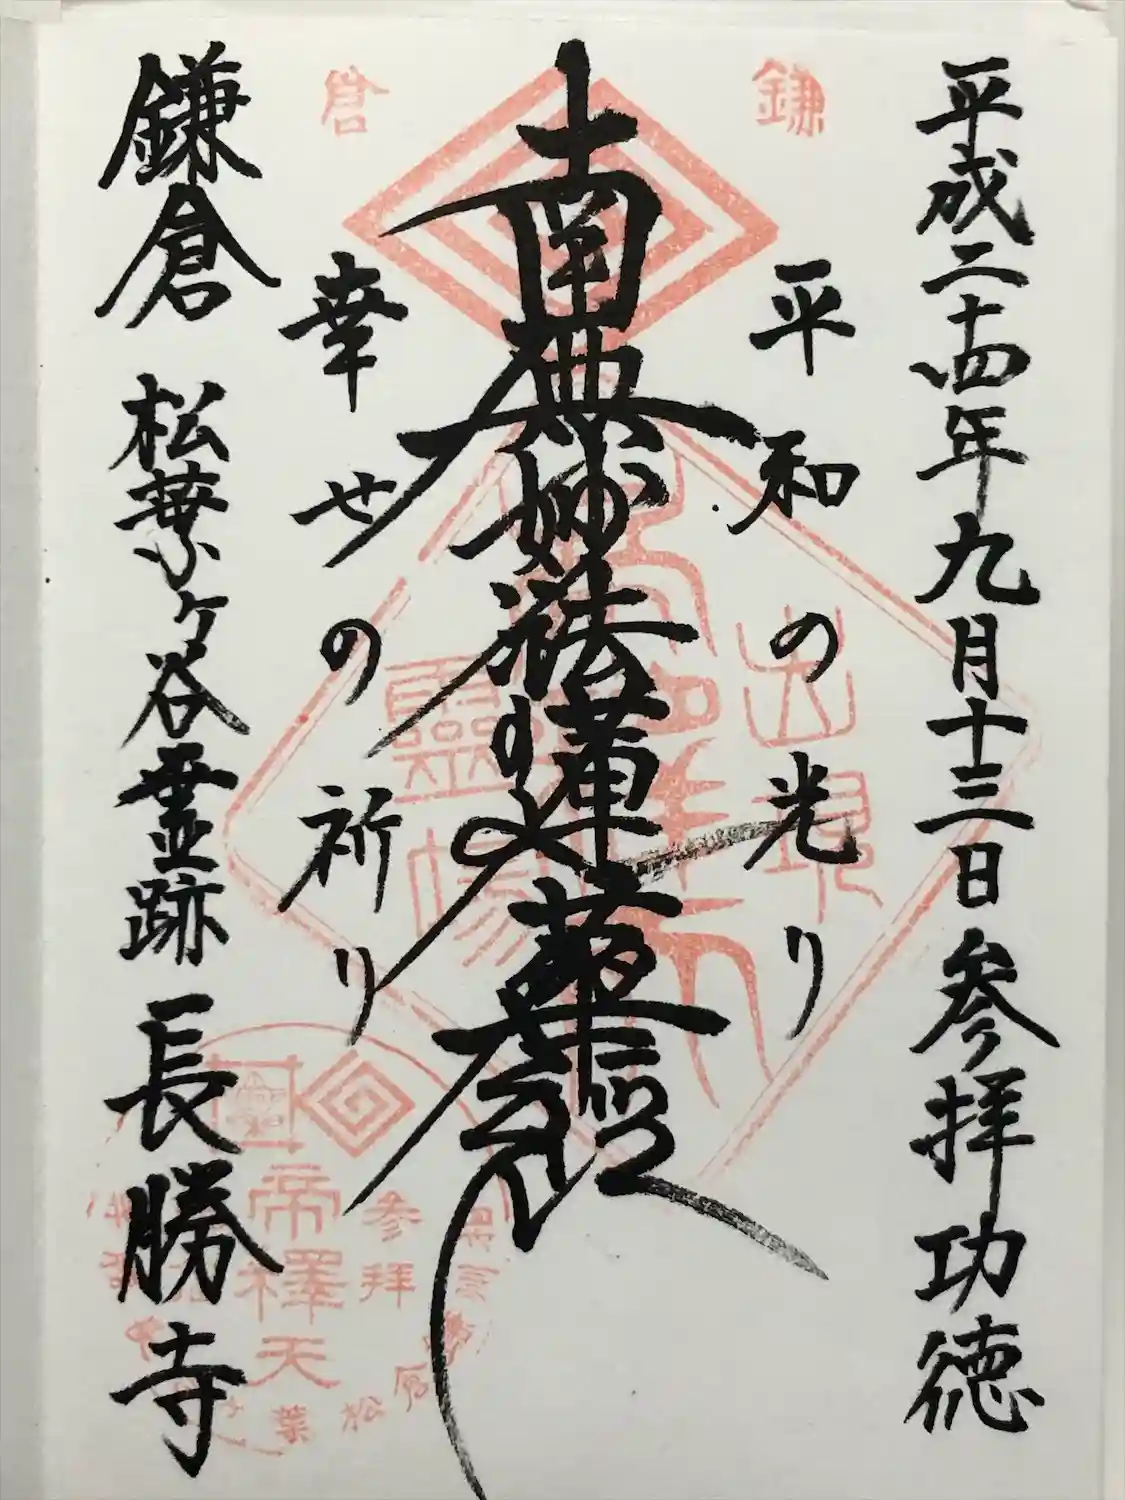 平成二十四年九月十三日 参拝功徳
鎌
平和の光り
南無妙法蓮華経
倉
幸せの祈り
鎌倉 松葉ヶ谷霊跡 長勝寺
出現
靈場
参拝
帝釋天